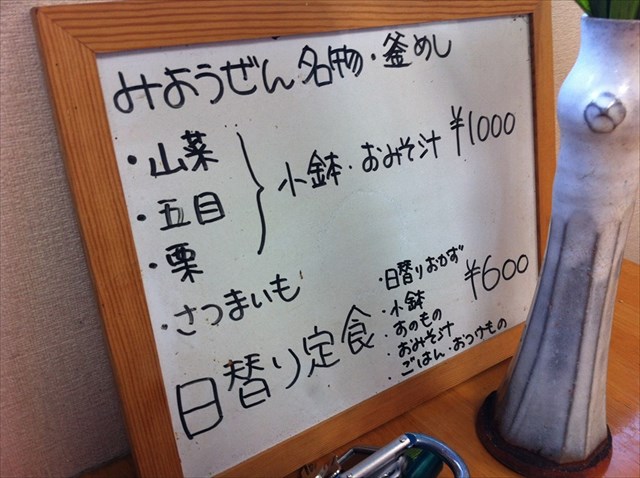 みようぜん名物・釜めし
・山菜
・五目
・栗
・さつまいも
小鉢・おみそ汁 ¥1000
日替り定食
・日替りおかず
・小鉢
・すのもの
・おみそ汁
・ごはん・おつけもの
¥600